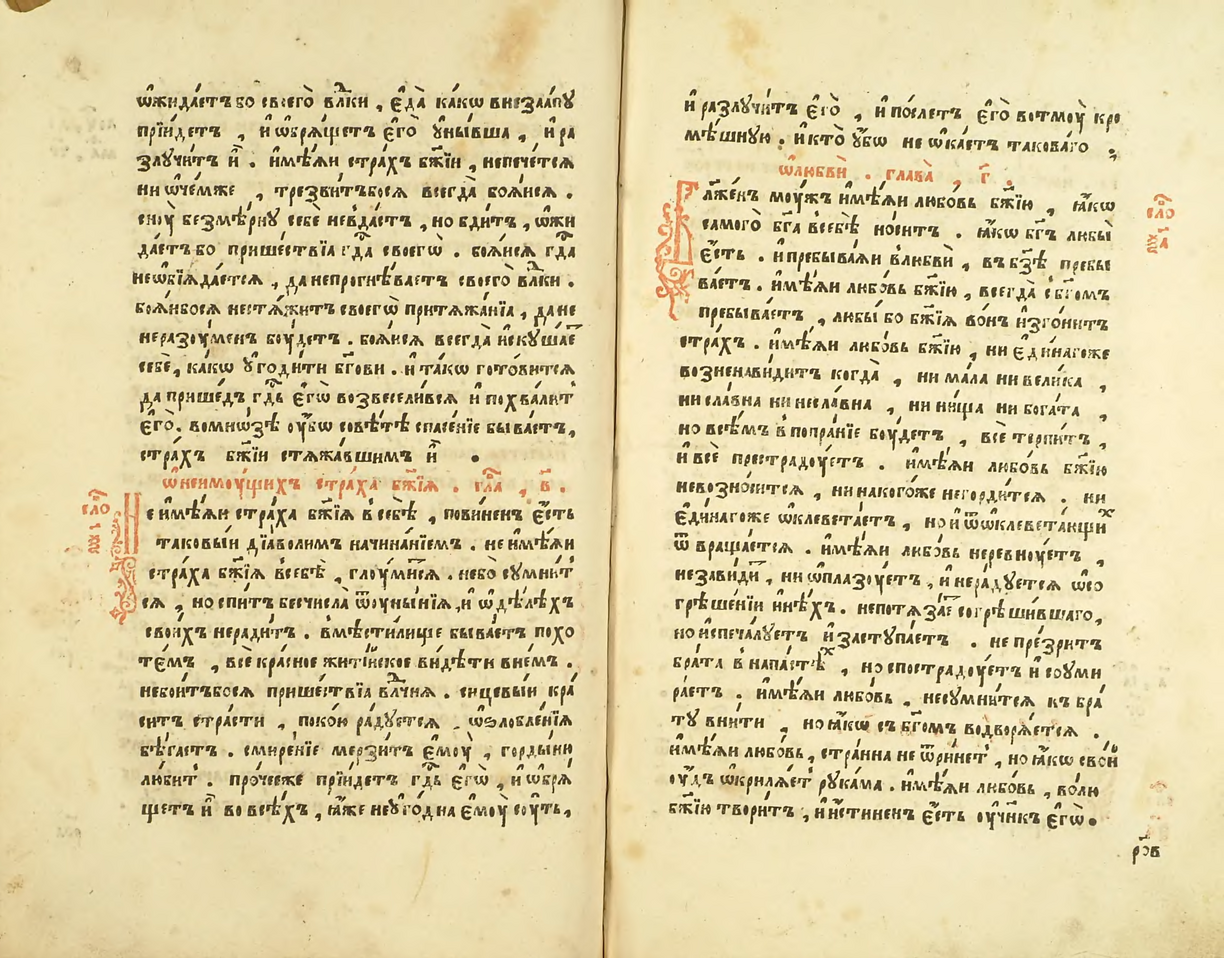 ѡ҆жида́етъ бо своего̀ влⷣки , є҆да̀ ка́кѡ внеза́апꙋ
прїи́детъ , и҆ ѡ҆брѧ́щетъ є҆го̀ ᲂу҆ны́вша , и҆ ра
злꙋчи́тъ и҆̀ . и҆мѣ́ѧи стра́хъ бж҃їи , непече́тсѧ
ни ѡ҆че́мже , трезви́тъбосѧ всегда̀ боѧ́исѧ .
сноу̀ безмѣ́рнꙋ себѐ невда́стъ , но бди́тъ , ѡ҆жи
да́етъ бо прише́ствїѧ гⷭ҇да своегѡ̀ . боѧ́исѧ гⷭ҇да
неѡ҆бїѧда́етсѧ , да непрогнѣ́ваетъ своего̀ влⷣки .
боѧ́ибосѧ нестѧ́житъ своегѡ̀ притѧжа́нїѧ , да не
неразоу́менъ боу́детъ . боѧ́исѧ всегда̀ и҆скꙋша́е
себѐ , ка́кѡ ᲂу҆годи́ти бг҃ови . и҆ та́кѡ гото́витсѧ
да прише́дъ гдⷭ҇ь є҆гѡ̀ возвесели́всѧ и҆ похва́лит
є҆го̀ . вомно́зѣ ᲂу҆́бѡ совѣ́тѣ спасе́нїе быва́етъ ,
стра́хъ бж҃їи стѧжа́вшимъ и҆̀ .
ѡ҆ неимоу́щихъ стра́ха бж҃їѧ . гла̑ , в҃ .
сло
ѯ҃а
Не и҆мѣ́ѧи стра́ха бж҃їѧ в себѣ̀ , пови́ненъ є҆́сть
таковы́и дїа́волимъ начина́нїемъ . не и҆мѣ́ѧи
стра́ха бж҃їѧ всебѣ̀ , глоуми́тсѧ . небо сумни́т
сѧ , но спи́тъ бесчисла̀ ѿоуны́нїѧ , и҆ ѡ҆ дѣ́лѣхъ
свои́хъ неради́тъ . вмѣсти́лище быва́етъ по́хо
те́мъ , всѐ кра́сное жите́йское ви́дѣти вне́мъ .
небои́тъбосѧ прише́ствїѧ влⷣчнѧ . сицевы́и кра
си́тъ стра́сти , поко́ю ра́дꙋетсѧ , ѡ҆ѕлобле́нїѧ
бѣ́гаетъ . смире́нїе мерзи́тъ є҆моу̀ , горды́ню
лю́бит . про́чееже прїи́детъ гдⷭ҇ь є҆гѡ̀ , и҆ ѡ҆брѧ́
щетъ и҆̀ во все́хъ , ꙗ҆́же неᲂу҆го́дна є҆моу̀ соу́ть ,
и҆ разлꙋчи́тъ є҆го̀ , и҆ по́слетъ є҆го̀ вотмоу̀ кро
мѣ́шнꙋю . и҆ кто̀ ᲂу҆́бѡ не ѡ҆ка́етъ такова́го .
ѡ҆ любвѝ . глава̀ , г҃ .
сло
ѯ҃а
Бл҃же́нъ моу́жъ и҆мѣ́ѧи любо́вь бж҃їю , ꙗ҆́кѡ
самого̀ бг҃а всебѣ̀ но́ситъ . ꙗ҆́кѡ бг҃ъ любы̀
є҆́сть . и҆ пребыва́ѧи влюбвѝ , въ бз҃ѣ пребы
ва́етъ . и҆мѣ́ѧи любо́вь бж҃їю , всегда̀ с бг҃омъ
пребыва́етъ , любы́ бо бж҃їѧ во́нъ и҆зго́нитъ
стра́хъ . и҆мѣ́ѧи любо́вь бж҃їю , ни є҆ди́нагоже
возненави́дитъ когда̀ , ни ма́ла ни вели́ка ,
ни сла́вна ни несла́вна , ни ни́ща ни бога́та ,
но все́мъ в попра́нїе боу́детъ , всѐ терпи́тъ ,
и҆ всѐ престрадоу́етъ . и҆мѣ́ѧи любо́вь бж҃їю
невозно́ситсѧ , ни накого́же негорди́тсѧ . ни
є҆ди́нагоже ѡ҆клевета́етъ , но и҆ ѿѡ҆клевета́ющиⷯ
ѿ враща́етсѧ . и҆мѣ́ѧи любо́вь неревноу́етъ ,
незави́ди , ни ѡ҆плазоу́етъ , и҆ нера́дꙋетсѧ ѡ҆ со
грѣше́нїи и҆нѣ́хъ . непотѧза́е согрѣши́вшаго ,
но и҆ спеча́лꙋетъ и҆ застꙋпа́етъ . не пре́зритъ
бра́та в напа́стеⷯ , но спострадоу́етъ и҆ соуми
ра́етъ . и҆мѣ́ѧи любо́вь , несꙋмни́тсѧ къ бра
тꙋ вни́ти , но ꙗ҆́кѡ съ бг҃омъ водворѧ́етсѧ .
и҆мѣ́ѧи любо́вь , стра́нна не ѿри́нет , но ꙗ҆́кѡ свои́
оу́дъ ѡ҆крилѧ́ет рꙋка́ма . и҆мѣ́ѧи любо́вь , во́лю
бж҃їю твори́тъ , и҆ и҆́стиненъ є҆́сть оу҆чн҃къ є҆гѡ̀ .
ро҃в